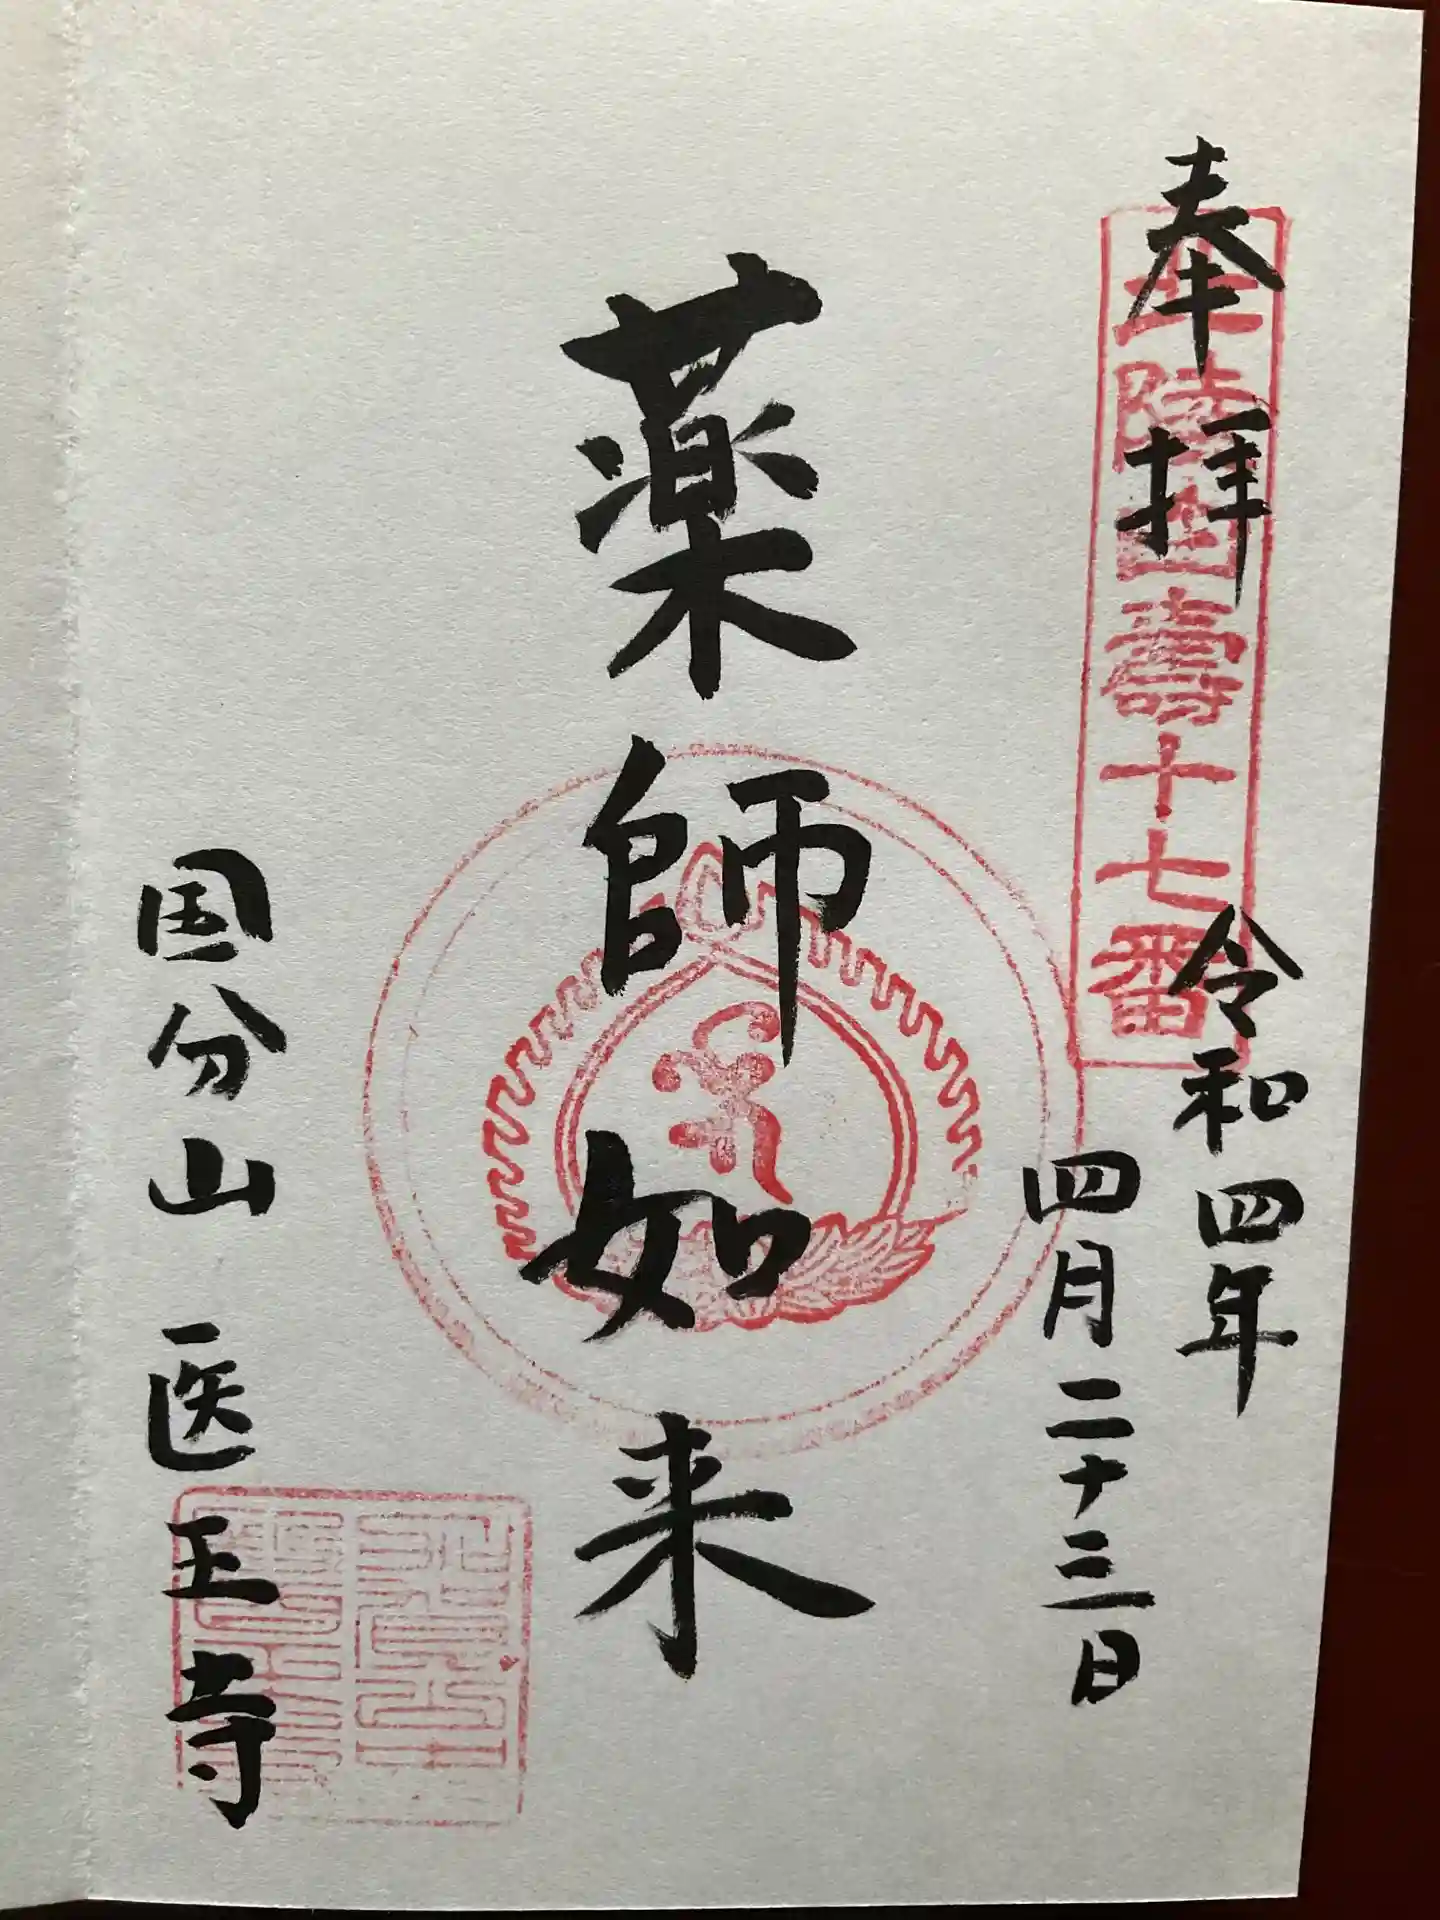 奉拝
北陸白壽十七番
令和四年
四月二十三日
薬師如来
国分山 医王寺